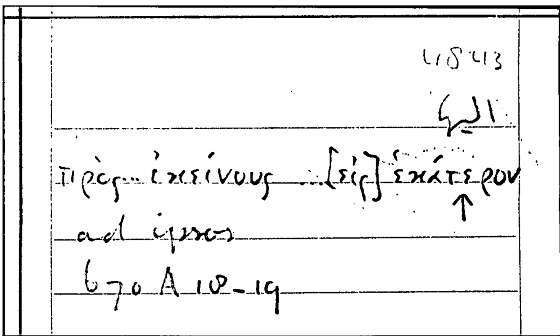 πρὸς ἐκείνους [εἰς] ἑκάτερον
↑
ad ipsos
670 A 18-19